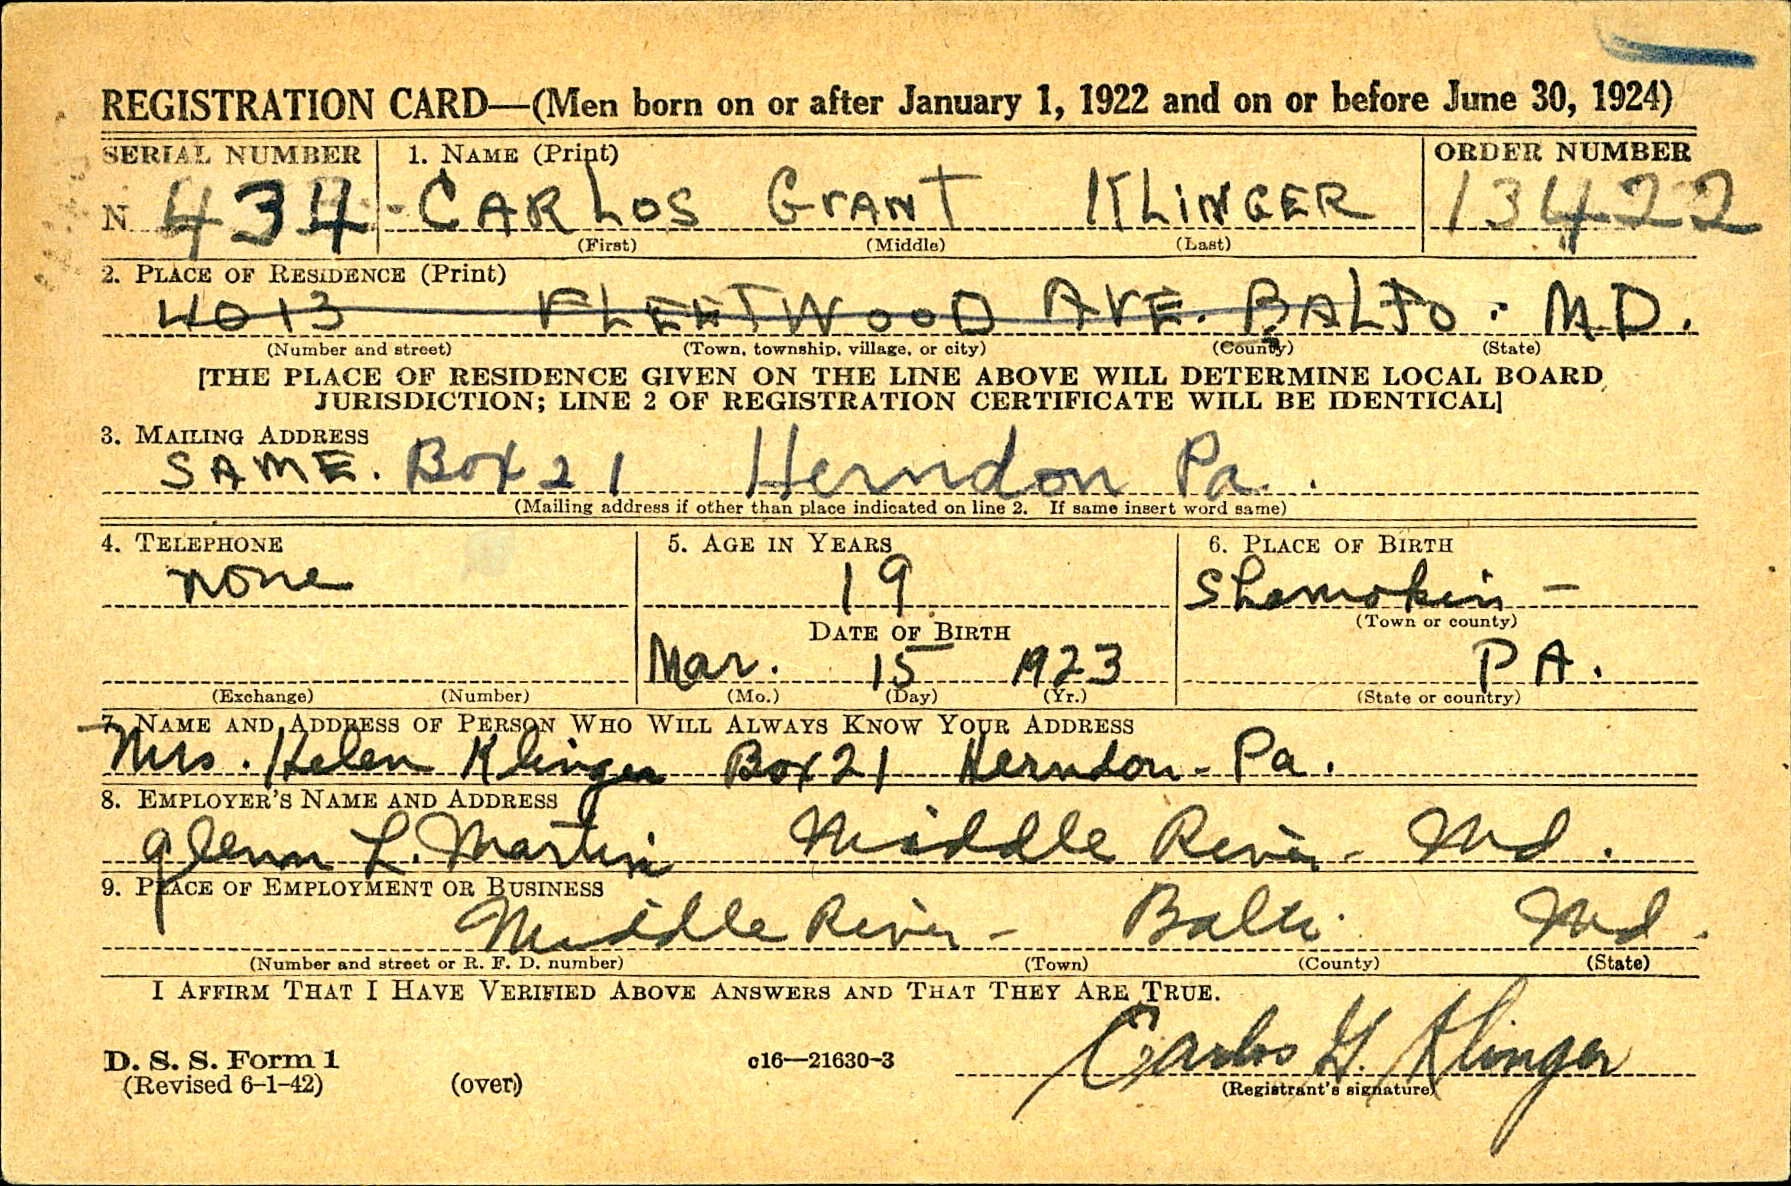 REGISTRATION CARD—(Men born on or after January 1, 1922 and on or before June 30, 1924)
SERIAL NUMBER 1. NAME (Print) ORDER NUMBER
N 434 CARLOS GRANT KLINGER 13422
(First) (Middle) (Last)
2. PLACE OF RESIDENCE (Print)
4013 FLEETWOOD AVE. BALTO. MD.
(Number and street) (Town, township, village, or city) (County) (State)
[THE PLACE OF RESIDENCE GIVEN ON THE LINE ABOVE WILL DETERMINE LOCAL BOARD
JURISDICTION; LINE 2 OF REGISTRATION CERTIFICATE WILL BE IDENTICAL]
3. MAILING ADDRESS
SAME. Box 21 Herndon Pa.
(Mailing address if other than place indicated on line 2. If same insert word same)
4. TELEPHONE 5. AGE IN YEARS 6. PLACE OF BIRTH
none 19 Shamokin -
(Town or county)
DATE OF BIRTH
Mar. 15 1923 PA.
(Exchange) (Number) (Mo.) (Day) (Yr.) (State or country)
7. NAME AND ADDRESS OF PERSON WHO WILL ALWAYS KNOW YOUR ADDRESS
Mrs. Helen Klinger Box 21 Herndon - Pa.
8. EMPLOYER'S NAME AND ADDRESS
Glenn L. Martin Middle River - Md.
9. PLACE OF EMPLOYMENT OR BUSINESS
Middle River - Balto. Md.
(Number and street or R. F. D. number) (Town) (County) (State)
I AFFIRM THAT I HAVE VERIFIED ABOVE ANSWERS AND THAT THEY ARE TRUE.
Carlos G. Klinger
D. S. S. Form 1 c16—21630-3
(Revised 6-1-42) (over) (Registrant's signature)